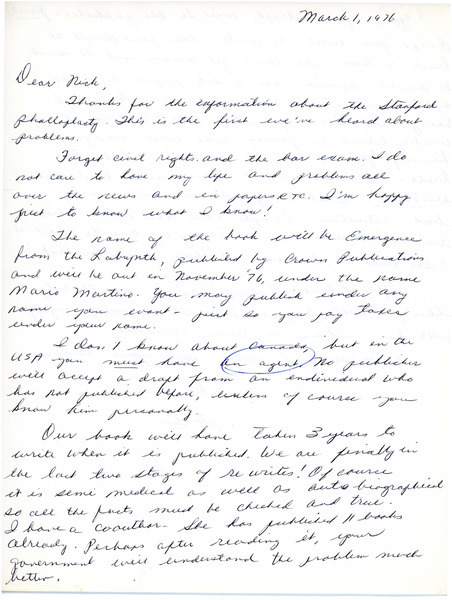 March 1, 1976
Dear Nick,
Thanks for the information about the Stanford
phalloplasty. This is the first we've heard about
problems.
Forget civil rights and the bar exam. I do
not care to have my life and problems all
over the news and in papers etc. I'm happy
just to know what I know!
The name of the book will be Emergence
from the Labyrinth, published by Crown Publications
and will be out in November '76, under the name
Mario Martino. You may publish under any
name you want - just so you pay taxes
under your name.
I don't know about Canada, but in the
USA you must have an agent. No publisher
will accept a draft from an individual who
has not published before, unless of course you
know him personally.
Our book will have taken 3 years to
write when it is published. We are finally in
the last two stages of re writes! Of course
it is semi medical as well as autobiographical
so all the facts must be checked and true.
I have a coauthor. She has published 11 books
already. Perhaps after reading it, your
government will understand the problem much
better.